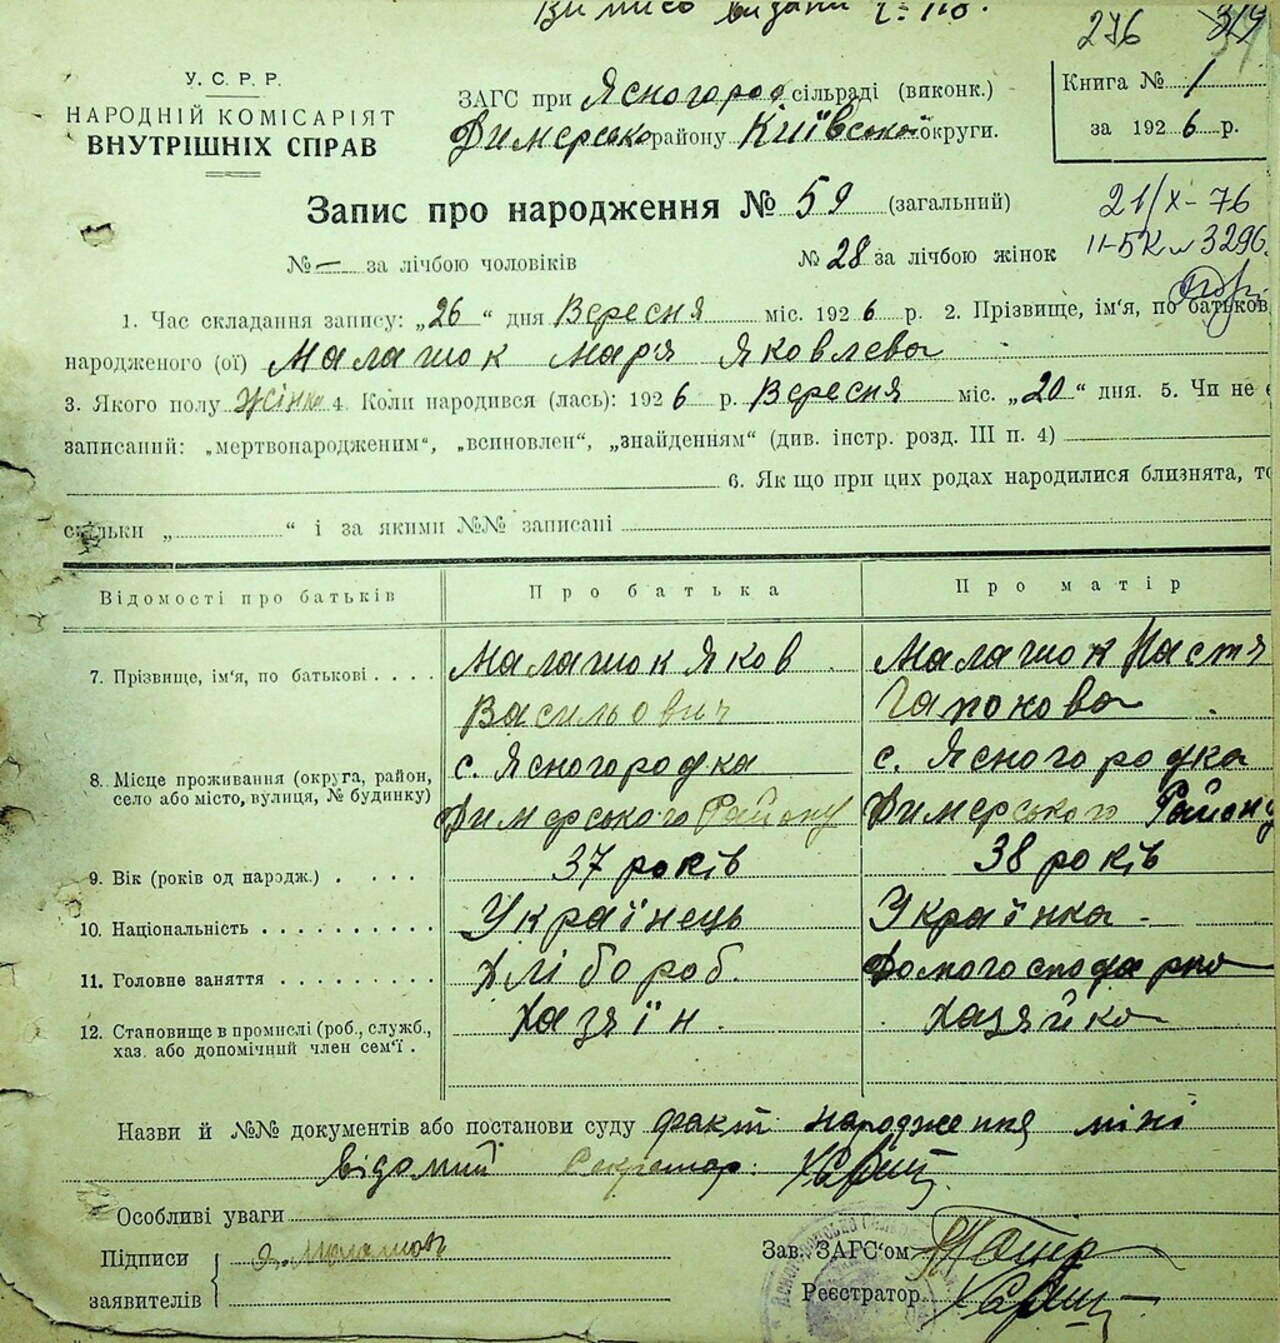 276 319
У. С. Р. Р.
НАРОДНІЙ КОМІСАРІЯТ
ВНУТРІШНІХ СПРАВ
ЗАГС при Ясногород сільраді (виконк.)
Димерсько району Київської округи.
Книга № 1
за 1926 р.
Запис про народження № 59 (загальний)
21/X-76
№ — за лічбою чоловіків
№ 28 за лічбою жінок
3296
1. Час складання запису: „26“ дня Вересня міс. 1926 р. 2. Прізвище, ім'я, по батьков
народженого (ої) Малашок Марія Яковлева
3. Якого полу Жінка 4. Коли народився (лась): 1926 р. Вересня міс. „20“ дня. 5. Чи не є
записаний: „мертвонародженим“, „всиновлен“, „знайденням“ (див. інстр. розд. III п. 4)
6. Як що при цих родах народилися близнята, то
скільки „ “ і за якими №№ записані
Відомості про батьків Про батька Про матір
7. Прізвище, ім'я, по батькові . . . . Малашок Яков Малашок Настя
Васильович
8. Місце проживання (округа, район, с. Ясногородка с. Ясногородка
село або місто, вулиця, № будинку) Димерського Району Димерського Району
9. Вік (років од народж.) . . . . 37 років 38 років
10. Національність . . . . . . . . . . Українець Українка
11. Головне заняття . . . . . . . . . Хлібороб. Домогосподарка
12. Становище в промислі (роб., служб., Хазяїн. Хазяйка
хаз. або допомічний член сем'ї .
Назви й №№ документів або постанови суду факт народження міні
відомий Секретар:
Особливі уваги
Підписи
заявителів
Зав. ЗАГС'ом
Реєстратор